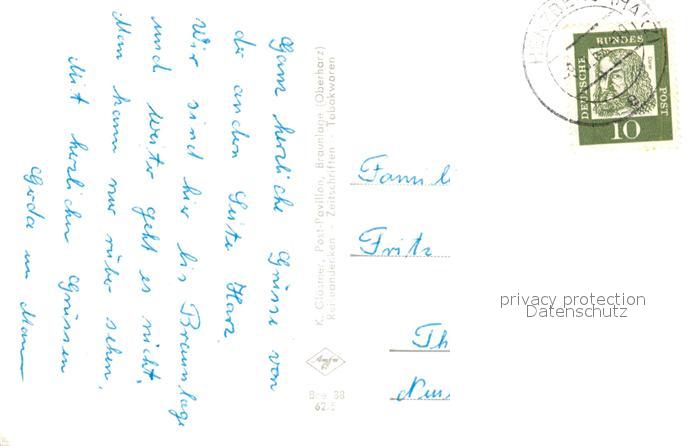 Ganz herzliche Grüsse von
de andern Seite Harz.
Wir sind hier bis Braunlage
und weiter geht es nicht.
Man kann nur rüber sehen.
Mit herzlichen Grüssen
Gerda u
K. Glasmer, Post-Pavillon, Braunlage (Oberharz)
Reiseandenken - Zeitschriften - Tabakwaren
Agfa
38
62/5
Famili
Fritz
Th
DEUTSCHE
BUNDES
POST
Dürer
10
HERZBERG (HARZ)
privacy protection
Datenschutz